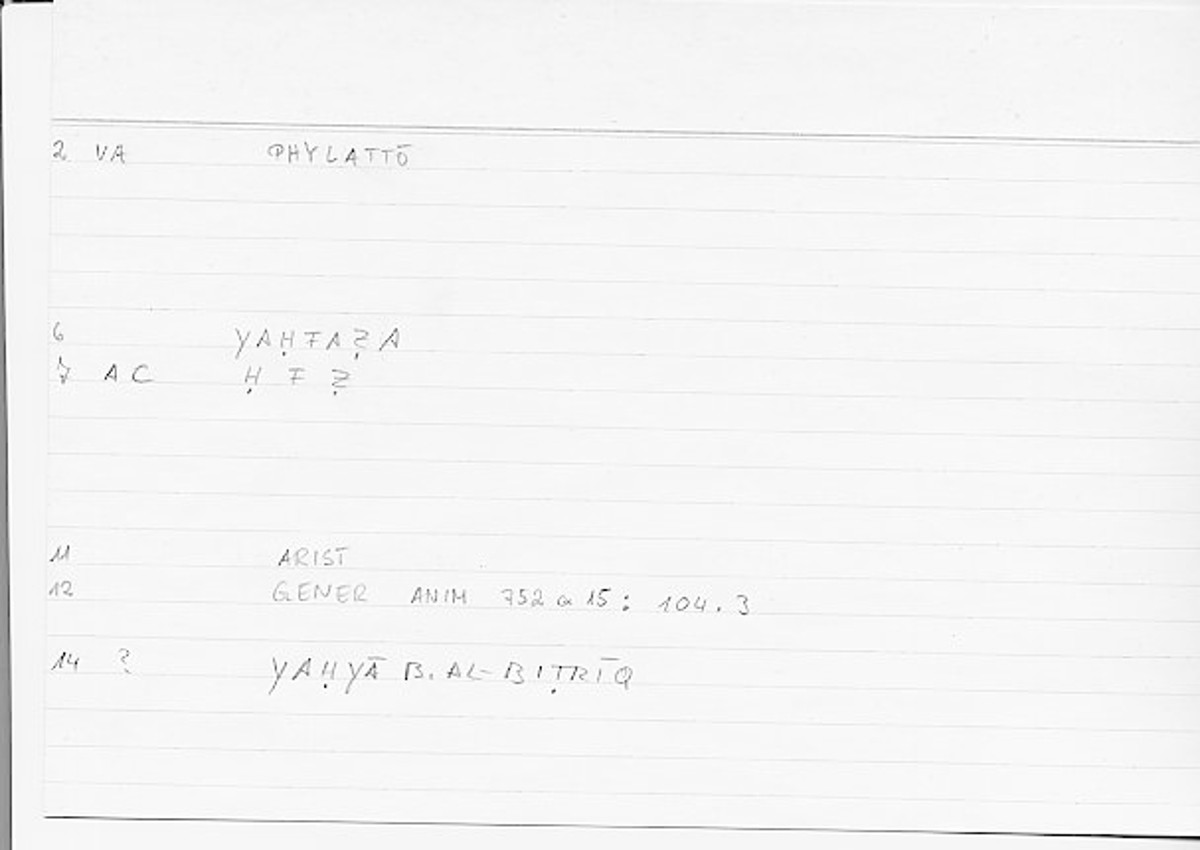 2 VA PHYLATTŌ
6 YAḤFAẒA
7 AC Ḥ F Ẓ
11 ARIST
12 GENER ANIM 752 a 15 : 104.3
14 ? YAḤYĀ B. AL-BIṬRĪQ